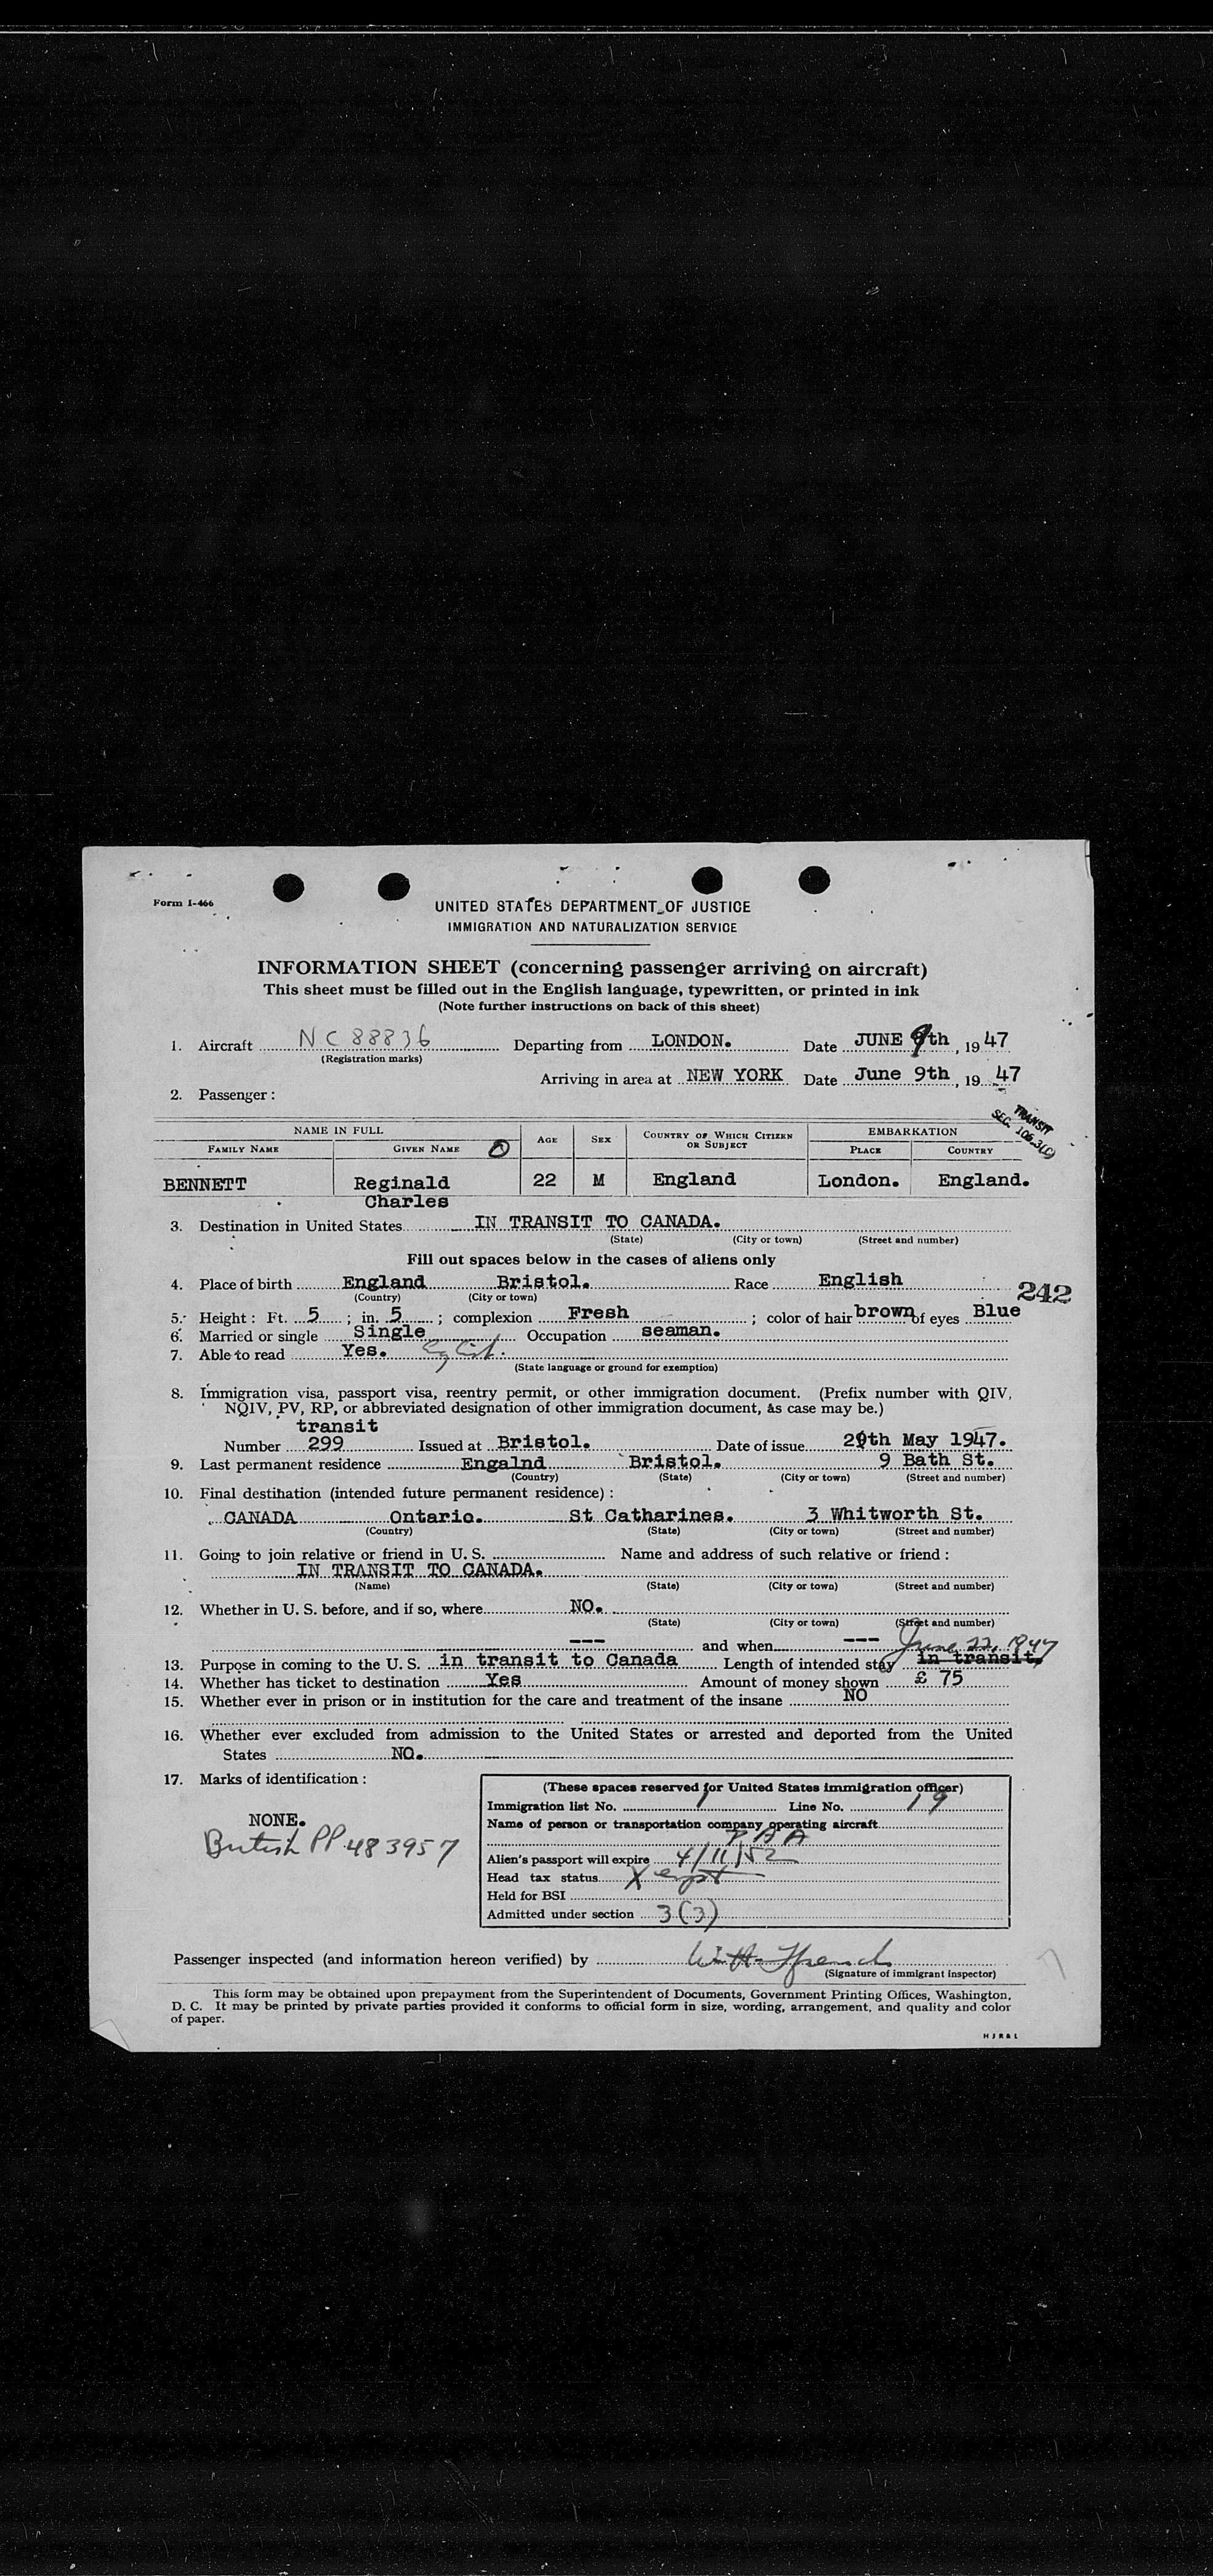 Form I-466
UNITED STATES DEPARTMENT OF JUSTICE
IMMIGRATION AND NATURALIZATION SERVICE
INFORMATION SHEET (concerning passenger arriving on aircraft)
This sheet must be filled out in the English language, typewritten, or printed in ink
(Note further instructions on back of this sheet)
1. Aircraft NC 88836 Departing from LONDON. Date JUNE 9th, 1947
(Registration marks)
Arriving in area at NEW YORK Date June 9th, 19 47
2. Passenger:
TRANSIT
SEC. 106.3(C)
NAME IN FULL AGE SEX COUNTRY OF WHICH CITIZEN OR SUBJECT EMBARKATION
FAMILY NAME GIVEN NAME PLACE COUNTRY
BENNETT Reginald 22 M England London. England.
Charles
3. Destination in United States IN TRANSIT TO CANADA.
(State) (City or town) (Street and number)
Fill out spaces below in the cases of aliens only
4. Place of birth England Bristol. Race English
(Country) (City or town)
242
5. Height: Ft. 5; in. 5; complexion Fresh; color of hair brown of eyes Blue
6. Married or single Single Occupation seaman.
7. Able to read Yes. English.
(State language or ground for exemption)
8. Immigration visa, passport visa, reentry permit, or other immigration document. (Prefix number with QIV,
NQIV, PV, RP, or abbreviated designation of other immigration document, as case may be.)
transit
Number 299 Issued at Bristol. Date of issue 29th May 1947.
9. Last permanent residence Engalnd Bristol. 9 Bath St.
(Country) (State) (City or town) (Street and number)
10. Final destination (intended future permanent residence):
CANADA Ontario. St Catharines. 3 Whitworth St.
(Country) (State) (City or town) (Street and number)
11. Going to join relative or friend in U. S. Name and address of such relative or friend:
IN TRANSIT TO CANADA.
(Name) (State) (City or town) (Street and number)
12. Whether in U. S. before, and if so, where NO.
(State) (City or town) (Street and number)
--- and when --- June 22, 1947
13. Purpose in coming to the U. S. in transit to Canada Length of intended stay in transit.
14. Whether has ticket to destination Yes Amount of money shown £ 75
15. Whether ever in prison or in institution for the care and treatment of the insane NO
16. Whether ever excluded from admission to the United States or arrested and deported from the United
States NO.
17. Marks of identification:
NONE.
British PP 483957
(These spaces reserved for United States immigration officer)
Immigration list No. 1 Line No. 19
Name of person or transportation company operating aircraft
P A A
Alien's passport will expire 4/11/52
Head tax status X empt
Held for BSI
Admitted under section 3(3)
Passenger inspected (and information hereon verified) by
(Signature of immigrant inspector)
This form may be obtained upon prepayment from the Superintendent of Documents, Government Printing Offices, Washington,
D. C. It may be printed by private parties provided it conforms to official form in size, wording, arrangement, and quality and color
of paper.
H J R & L